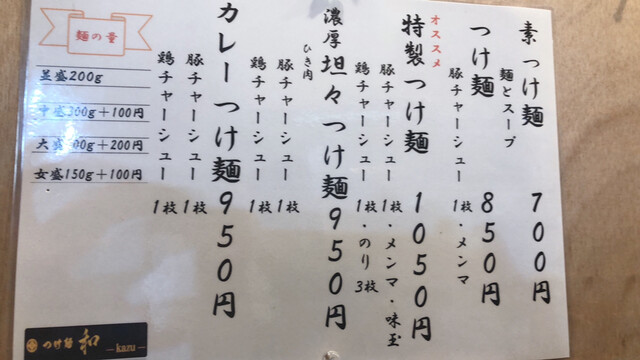 素つけ麺 700円
麺とスープ
つけ麺 850円
豚チャーシュー 1枚・メンマ
オススメ
特製つけ麺 1050円
豚チャーシュー 1枚・メンマ・味玉
鶏チャーシュー 1枚・のり3枚
濃厚坦々つけ麺 950円
ひき肉
豚チャーシュー 1枚
鶏チャーシュー 1枚
カレーつけ麺 950円
豚チャーシュー 1枚
鶏チャーシュー 1枚
麺の量
並盛200g
中盛300g+100円
大盛400g+200円
女盛150g+100円
つけ麺 和
-kazu-